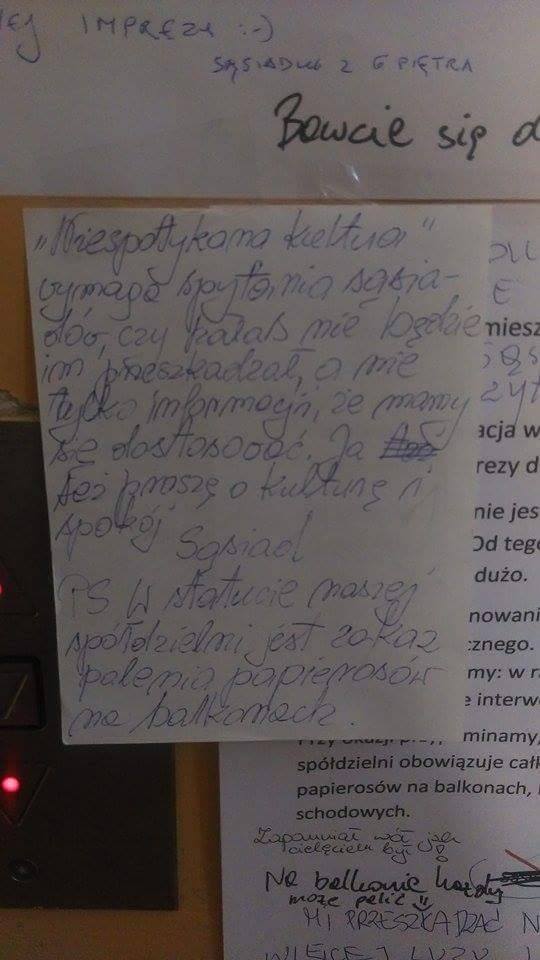 EJ IMPREZY :-)
SĄSIADKI Z 6 PIĘTRA
Bawcie się d
„Niespotykana kultura"
wymaga spytania sąsia-
dów, czy hałas nie będzie
im przeszkadzał, a nie
tylko informacji, że mamy
się dostosować. Ja
też proszę o kulturę i
spokój
Sąsiad
PS W statucie naszej
spółdzielni jest zakaz
palenia papierosów
na balkonach.
E
miesz
acja w
rezy d
nie jes
Od tego
dużo.
nowani
znego.
my: w ra
e interwe
minamy,
spółdzielni obowiązuje całk
papierosów na balkonach,
schodowych.
Zapomniał wół jak
cielęciem był!
Na balkonie każdy
może palić
MI PRZESZKADZAĆ N
WIĘCEJ LUZU